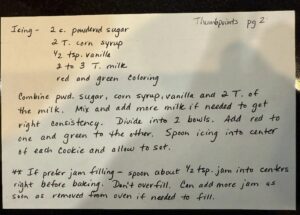 Thumbprints pg 2
Icing - 2 c. powdered sugar
2 T. corn syrup
½ tsp. vanilla
2 to 3 T. milk
red and green coloring
Combine pwd. sugar, corn syrup, vanilla and 2 T. of
the milk. Mix and add more milk if needed to get
right consistency. Divide into 2 bowls. Add red to
one and green to the other. Spoon icing into center
of each cookie and allow to set.
** If prefer jam filling - spoon about ½ tsp. jam into centers
right before baking. Don't overfill. Can add more jam as
soon as removed from oven if needed to fill.